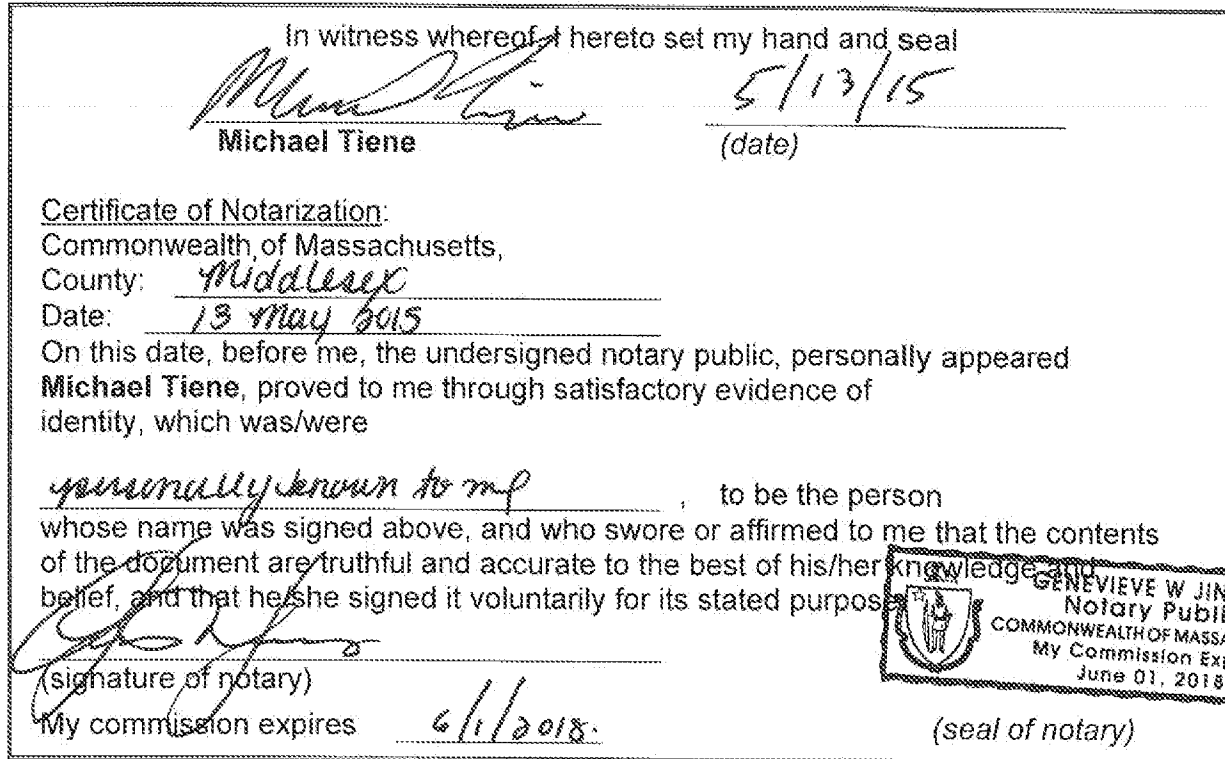 In witness whereof, I hereto set my hand and seal
5/13/15
Michael Tiene (date)
Certificate of Notarization:
Commonwealth of Massachusetts,
County: Middlesex
Date: 13 May 2015
On this date, before me, the undersigned notary public, personally appeared
Michael Tiene, proved to me through satisfactory evidence of
identity, which was/were
personally known to me , to be the person
whose name was signed above, and who swore or affirmed to me that the contents
of the document are truthful and accurate to the best of his/her knowledge and
belief, and that he/she signed it voluntarily for its stated purpose
GENEVIEVE W JIN
Notary Publi
COMMONWEALTH OF MASSA
My Commission Exp
June 01, 2018
(signature of notary)
My commission expires 6/1/2018.
(seal of notary)